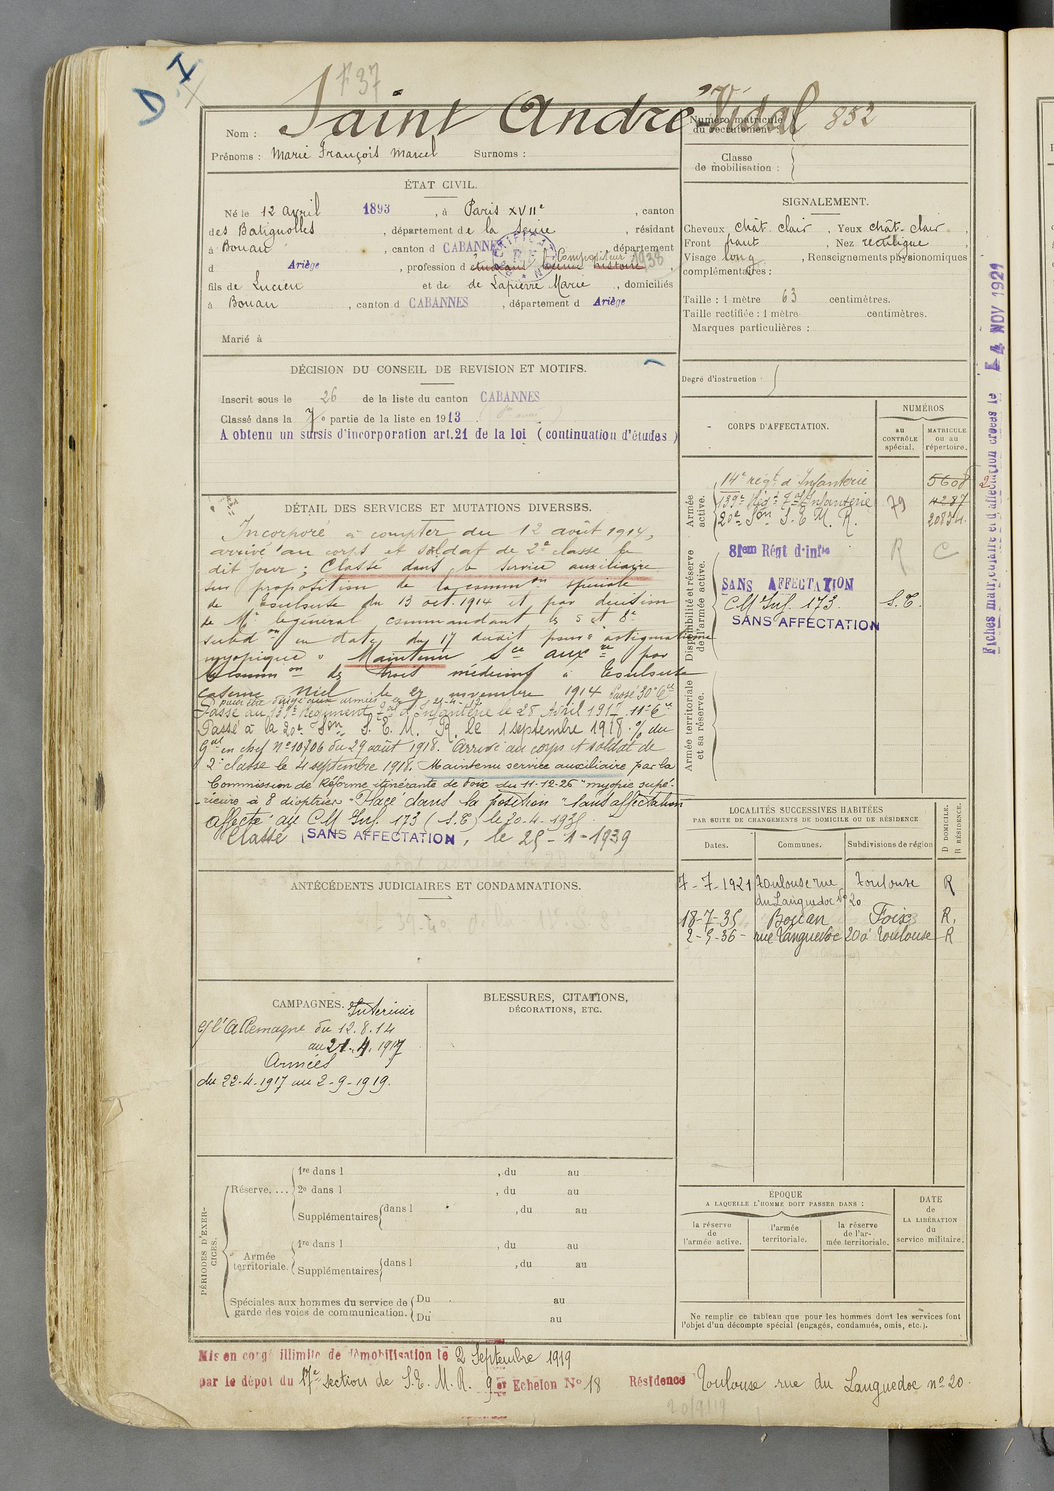 D. I
F37
Nom : Saint André-Vidal 852
Numéro matricule du recrutement
Prénoms : Marie François Marcel Surnoms :
Classe de mobilisation :
ÉTAT CIVIL.
Né le 12 avril 1893, à Paris XVIIe, canton
des Batignolles, département de la Seine, résidant
à Bouan, canton d CABANNES, département
d Ariège, profession d'étudiant Compositeur 1938
fils de Lucien et de de Lapierre Marie, domiciliés
à Bouan, canton d CABANNES, département d Ariège
Marié à
SIGNALEMENT.
Cheveux chât. clair, Yeux chât. clair
Front haut, Nez rectiligne
Visage long, Renseignements physionomiques
complémentaires :
Taille : 1 mètre 63 centimètres.
Taille rectifiée : 1 mètre centimètres.
Marques particulières :
Degré d'instruction :
DÉCISION DU CONSEIL DE REVISION ET MOTIFS.
Inscrit sous le no 26 de la liste du canton CABANNES
Classé dans la 7e partie de la liste en 1913
A obtenu un sursis d'incorporation art.21 de la loi (continuation d'études)
DÉTAIL DES SERVICES ET MUTATIONS DIVERSES.
Incorporé à compter du 12 août 1914,
arrivé au corps et soldat de 2e classe le
dit jour ; Classé dans le service auxiliaire
sur proposition de la common spéciale
de Toulouse du 13 oct. 1914 et par décision
de Mr le général commandant les 5 et 8e
subdon en date du 17 dudit pour "astigmatisme
myopique". Maintenu sce auxre par
la common des trois médecins à Toulouse
caserne Niel le 27 novembre 1914
pour être dirigé aux armées
Passé au 139e Régiment d'Infanterie le 28 Avril 1917 11e Cie
Passé à la 20e Son S.E.M.R. le 1 septembre 1918. O/ du
Gal en chef no 10706 du 29 août 1918. Arrivé au corps et soldat de
2e classe le 4 septembre 1918. Maintenu service auxiliaire par la
Commission de Réforme itinérante de Foix du 11-12-26 "myopie supé-
-rieure à 8 dioptries" Placé dans la position "sans affectation
affecté au CM Inf. 173 (S.E) le 20-4-193
Classé SANS AFFECTATION, le 25-1-1939
CORPS D'AFFECTATION.
NUMÉROS
au CONTRÔLE spécial.
MATRICULE ou au répertoire.
Armée active.
14e régt d'Infanterie 5608
139e Régt d'Infanterie 79 4287
20e Son S.E.M.R. 20834
Disponibilité et réserve de l'armée active.
81em Régt d'Infie R C
SANS AFFECTATION
CM Inf. 173. S.E.
SANS AFFECTATION
Armée territoriale et sa réserve.
Fiches matriculaire et d'affectation créées le 4 NOV 1921
ANTÉCÉDENTS JUDICIAIRES ET CONDAMNATIONS.
LOCALITÉS SUCCESSIVES HABITÉES
PAR SUITE DE CHANGEMENTS DE DOMICILE OU DE RÉSIDENCE
Dates. Communes. Subdivisions de région D DOMICILE. R RÉSIDENCE.
7-7-1921 Toulouse rue Toulouse R
du Languedoc No 20
18-7-35 Bouan Foix R.
2-5-36- rue Languedoc 20 à Toulouse R
CAMPAGNES.
Intérieur
C/ l'Allemagne du 12.8.14
au 21.4.1917
Armées
du 22-4-1917 au 2-9-1919.
BLESSURES, CITATIONS,
DÉCORATIONS, ETC.
PÉRIODES D'EXERCICES.
Réserve....
1re dans l , du au
2e dans l , du au
Supplémentaires dans l , du au
Armée territoriale.
1re dans l , du au
Supplémentaires dans l , du au
Spéciales aux hommes du service de garde des voies de communication.
Du au
Du au
ÉPOQUE
A LAQUELLE L'HOMME DOIT PASSER DANS :
la réserve de l'armée active.
l'armée territoriale.
la réserve de l'armée territoriale.
DATE de LA LIBÉRATION du service militaire.
Ne remplir ce tableau que pour les hommes dont les services font
l'objet d'un décompte spécial (engagés, condamnés, omis, etc.).
Mis en congé illimité de démobilisation le 2 Septembre 1919
par le dépôt du 17e section de S.E.M.R. 9er Echelon No 18 Résidence Toulouse rue du Languedoc no 20.